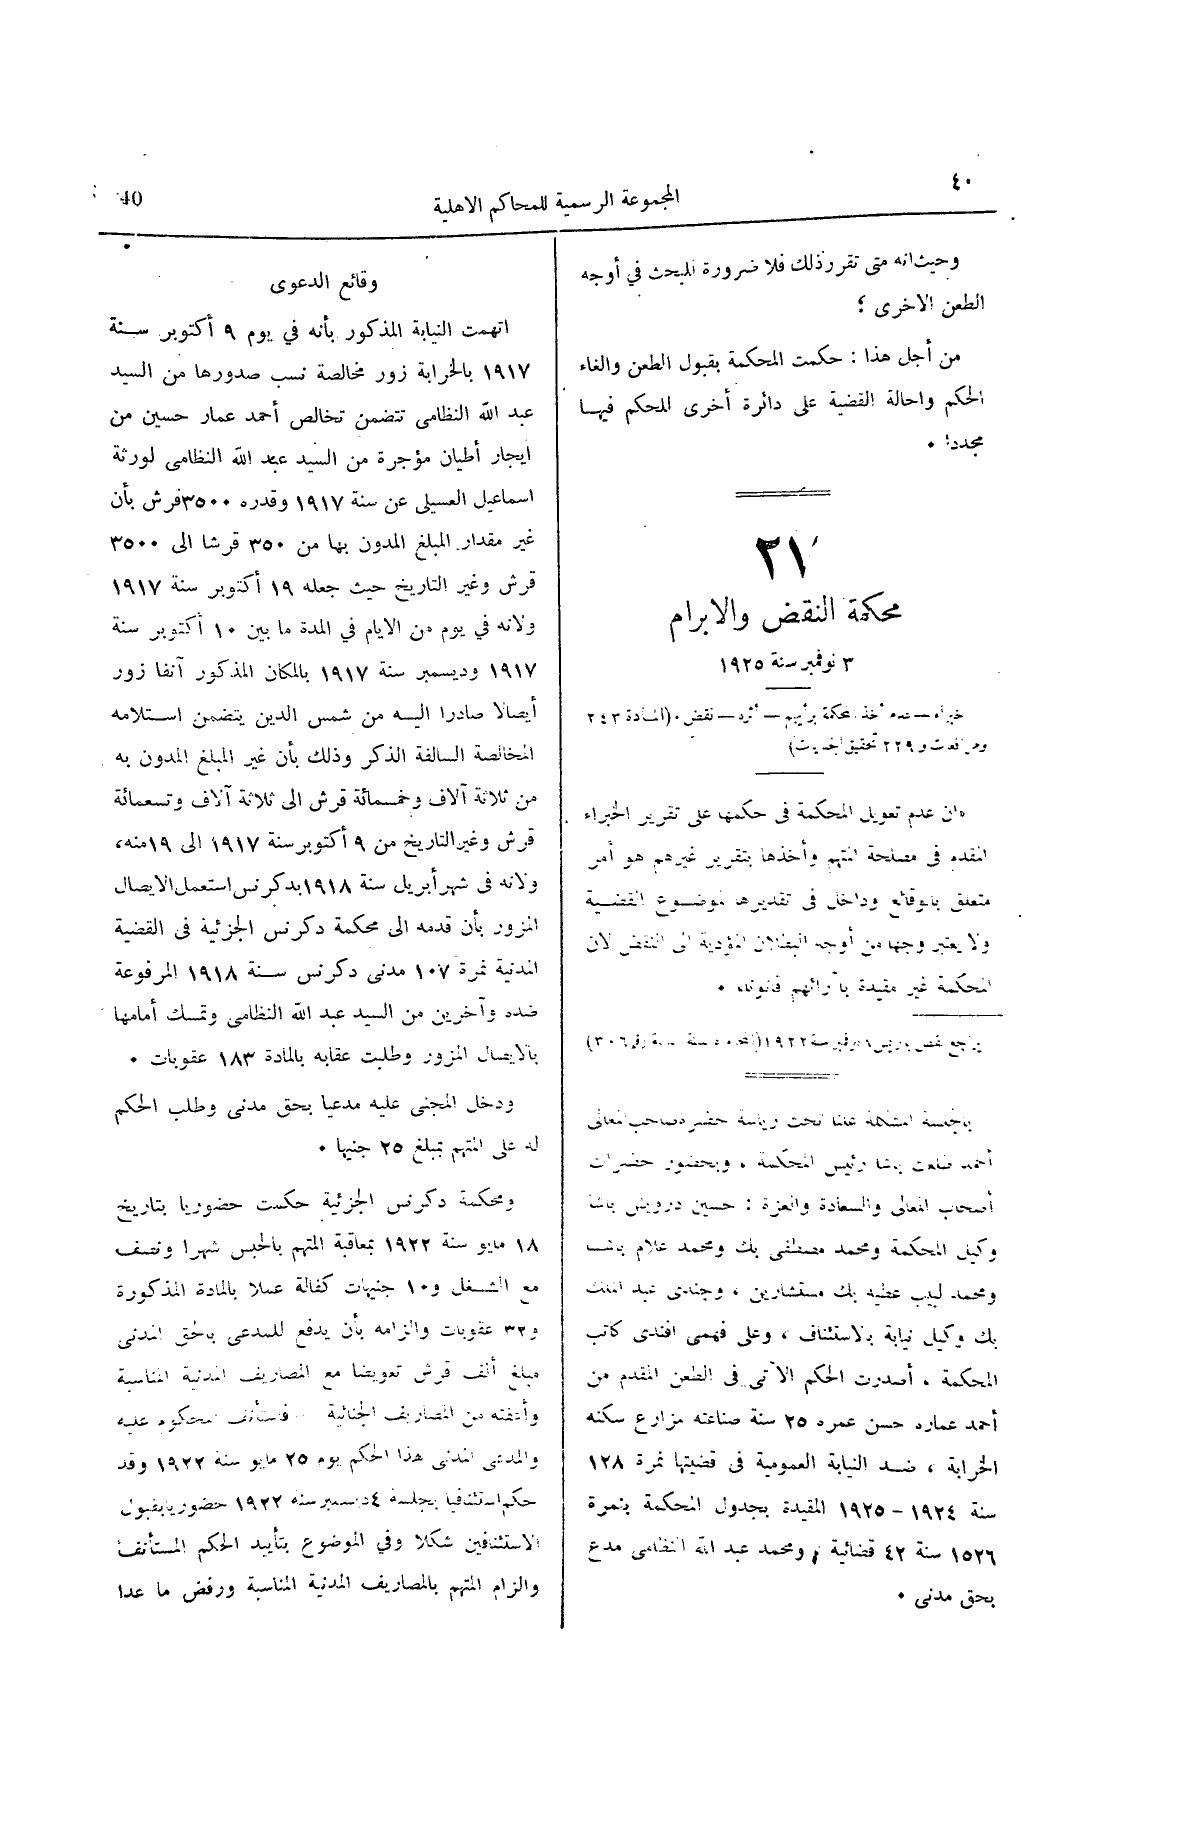 ٤٠
المجموعة الرسمية للمحاكم الاهلية
40
وحيث انه متى تقرر ذلك فلا ضرورة للبحث في أوجه
الطعن الاخرى ؛
من أجل هذا : حكمت المحكمة بقبول الطعن والغاء
الحكم واحالة القضية على دائرة أخرى للحكم فيها
مجددا ٠
٢١
محكمة النقض والابرام
٣ نوفمبر سنة ١٩٢٥
خبراء — عدم أخذ المحكمة برأيهم — أثره — نقض ٠ (المادة ٢٤٣
مرافعات و ٢٢٩ تحقيق الجنايات)
ان عدم تعويل المحكمة فى حكمها على تقرير الخبراء
المقدم فى مصلحة المتهم وأخذها بتقرير غيرهم هو أمر
متعلق بالوقائع وداخل فى تقديرها لموضوع القضية
ولا يعتبر وجها من أوجه البطلان المؤدية الى النقض لان
المحكمة غير مقيدة بآرائهم قانونا ٠
يراجع نقض سنة ١٩٢٢ رقم ٣٠٦)
بالجلسة المشكلة علنا تحت رياسة حضرة صاحب المعالى
أحمد طلعت باشا رئيس المحكمة ، وبحضور حضرات
أصحاب المعالى والسعادة والعزة : حسين درويش باشا
وكيل المحكمة ومحمد مصطفى بك ومحمد علام باشا
ومحمد لبيب عطيه بك مستشارين ، وجندى عبد الملك
بك وكيل نيابة بالاستئناف ، وعلى فهمى افندى كاتب
المحكمة ، أصدرت الحكم الآتى فى الطعن المقدم من
أحمد عماره حسن عمره ٢٥ سنة صناعته مزارع سكنه
الخرابة ، ضد النيابة العمومية فى قضيتها نمرة ١٢٨
سنة ١٩٢٤ - ١٩٢٥ المقيدة بجدول المحكمة بنمرة
١٥٢٦ سنة ٤٢ قضائية , ومحمد عبد الله النظامى مدع
بحق مدنى ٠
وقائع الدعوى
اتهمت النيابة المذكور بأنه في يوم ٩ أكتوبر سنة
١٩١٧ بالخرابة زور مخالصة نسب صدورها من السيد
عبد الله النظامى تتضمن تخالص أحمد عمار حسين من
ايجار أطيان مؤجرة من السيد عبد الله النظامى لورثة
اسماعيل العسيلى عن سنة ١٩١٧ وقدره ٣٥٠٠ قرش بأن
غير مقدار المبلغ المدون بها من ٣٥٠ قرشا الى ٣٥٠٠
قرش وغير التاريخ حيث جعله ١٩ أكتوبر سنة ١٩١٧
ولانه في يوم من الايام في المدة ما بين ١٠ أكتوبر سنة
١٩١٧ وديسمبر سنة ١٩١٧ بالمكان المذكور آنفا زور
أيصالا صادرا اليه من شمس الدين يتضمن استلامه
المخالصة السالفة الذكر وذلك بأن غير المبلغ المدون به
من ثلاثة آلاف وخمسمائة قرش الى ثلاثة آلاف وتسعمائة
قرش وغير التاريخ من ٩ أكتوبر سنة ١٩١٧ الى ١٩ منه،
ولانه فى شهر أبريل سنة ١٩١٨ بدكرنس استعمل الايصال
المزور بأن قدمه الى محكمة دكرنس الجزئية فى القضية
المدنية نمرة ١٠٧ مدنى دكرنس سنة ١٩١٨ المرفوعة
ضده وآخرين من السيد عبد الله النظامى وتمسك أمامها
بالايصال المزور وطلبت عقابه بالمادة ١٨٣ عقوبات ٠
ودخل المجنى عليه مدعيا بحق مدنى وطلب الحكم
له على المتهم بمبلغ ٢٥ جنيها ٠
ومحكمة دكرنس الجزئية حكمت حضوريا بتاريخ
١٨ مايو سنة ١٩٢٢ بمعاقبة المتهم بالحبس شهرا ونصف
مع الشغل و١٠ جنيهات كفالة عملا بالمادة المذكورة
و٣٢ عقوبات والزامه بأن يدفع للمدعى بالحق المدنى
مبلغ ألف قرش تعويضا مع المصاريف المدنية المناسبة
وأعفته من المصاريف الجنائية فاستأنف المحكوم عليه
والمدعى المدنى هذا الحكم يوم ٢٥ مايو سنة ١٩٢٢ وقد
حكم استئنافيا بجلسة ٤ ديسمبر سنة ١٩٢٢ حضوريا بقبول
الاستئنافين شكلا وفي الموضوع بتأييد الحكم المستأنف
والزام المتهم بالمصاريف المدنية المناسبة ورفض ما عدا